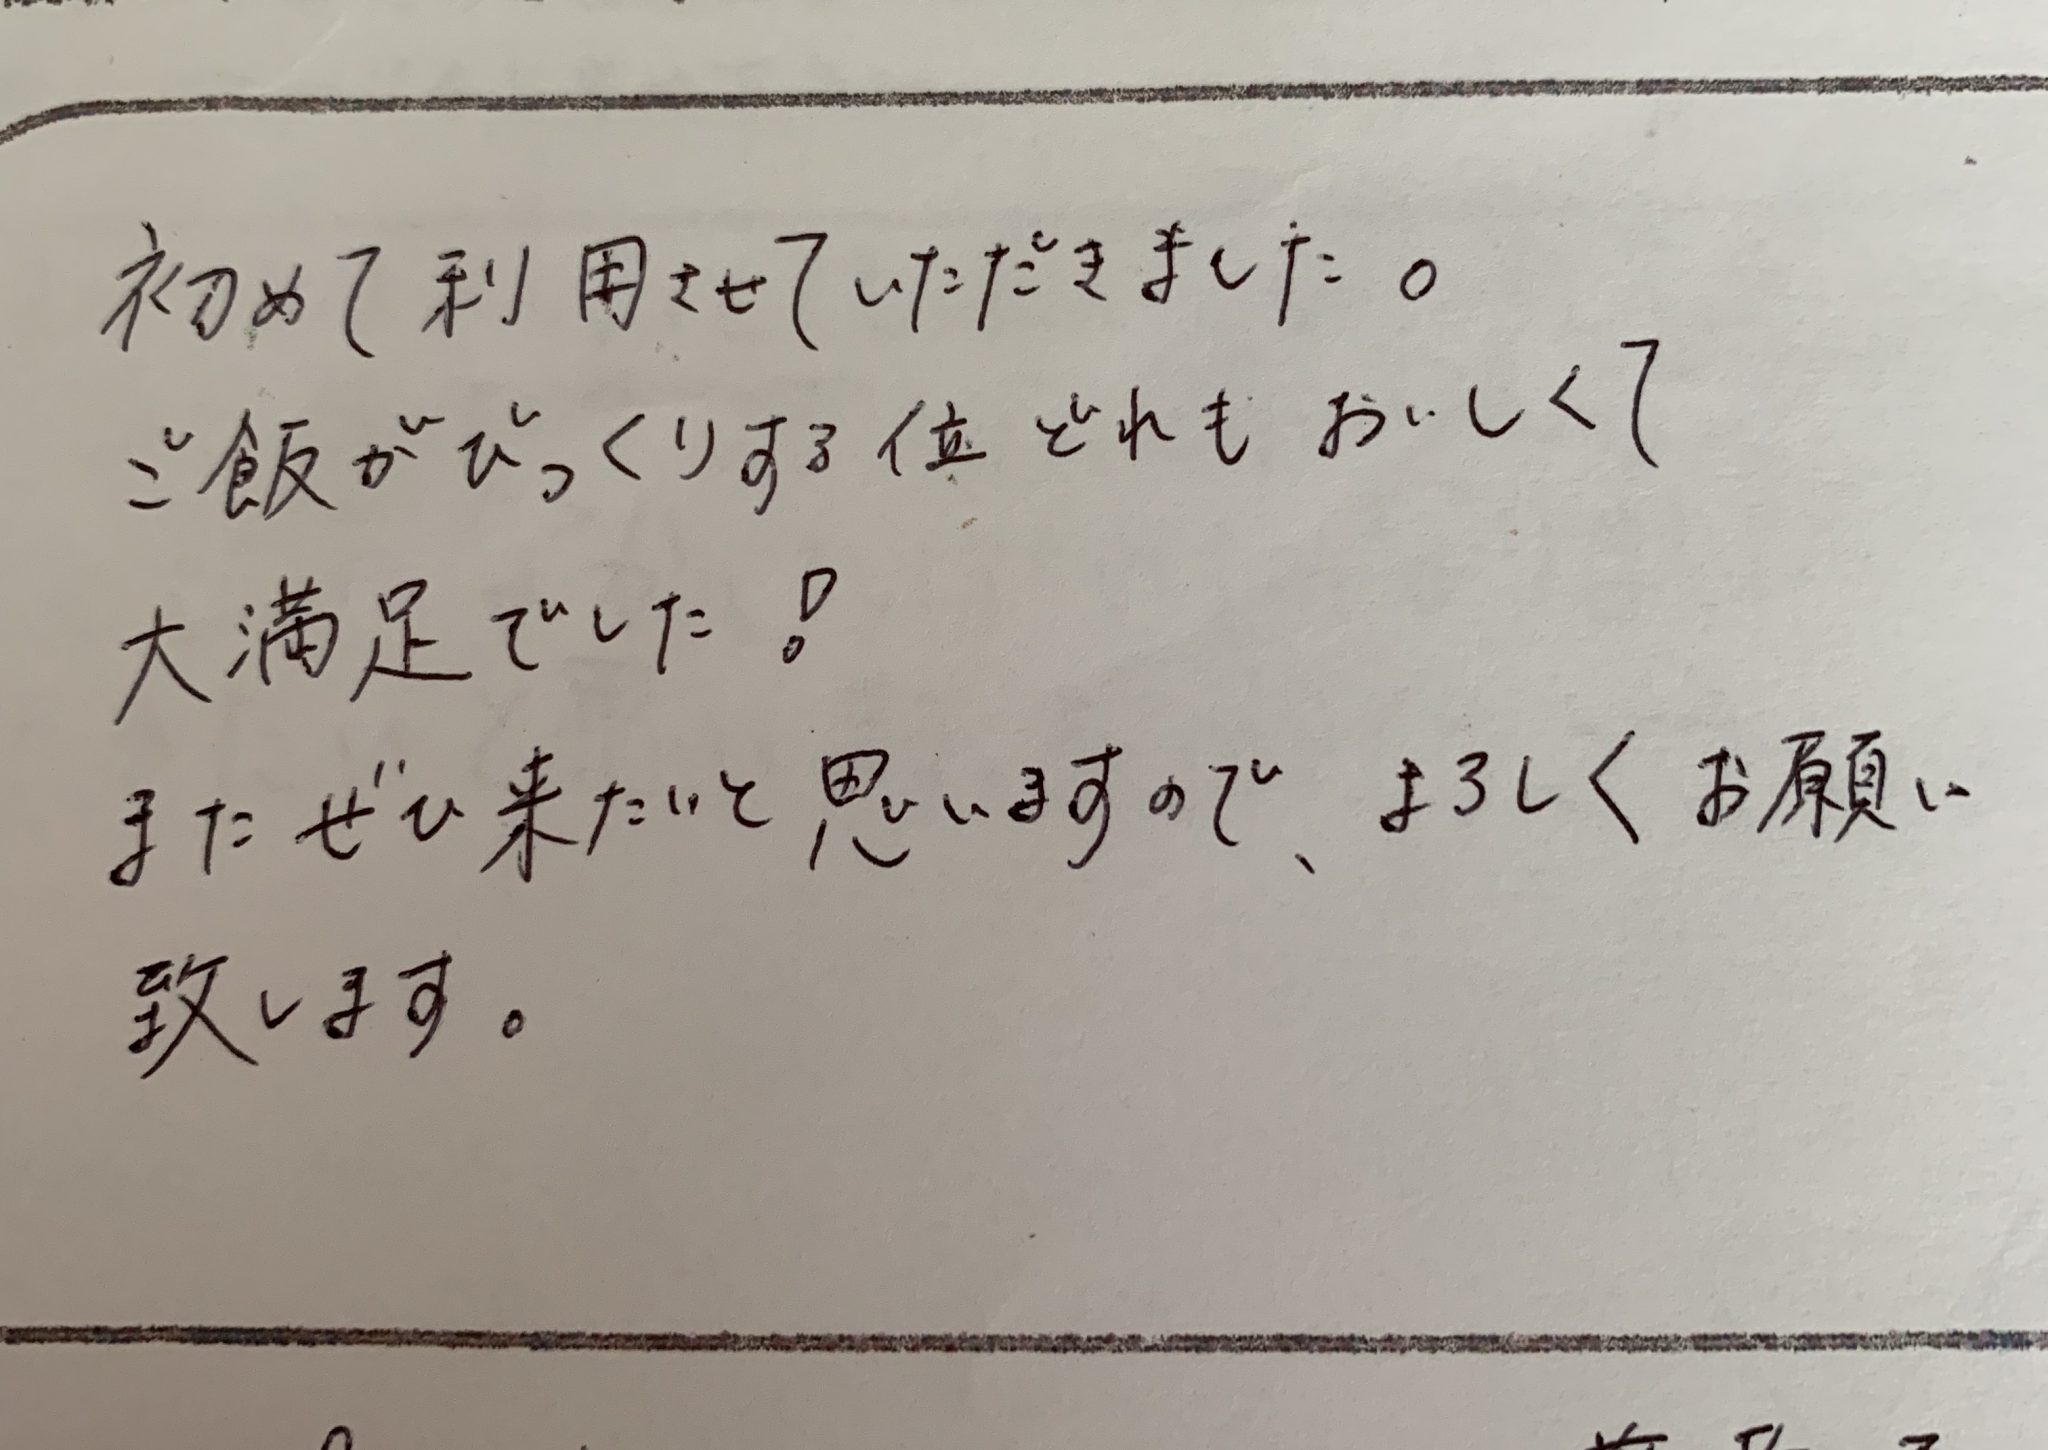 初めて利用させていただきました。
ご飯がびっくりする位どれもおいしくて
大満足でした!
またぜひ来たいと思いますので、よろしくお願い
致します。